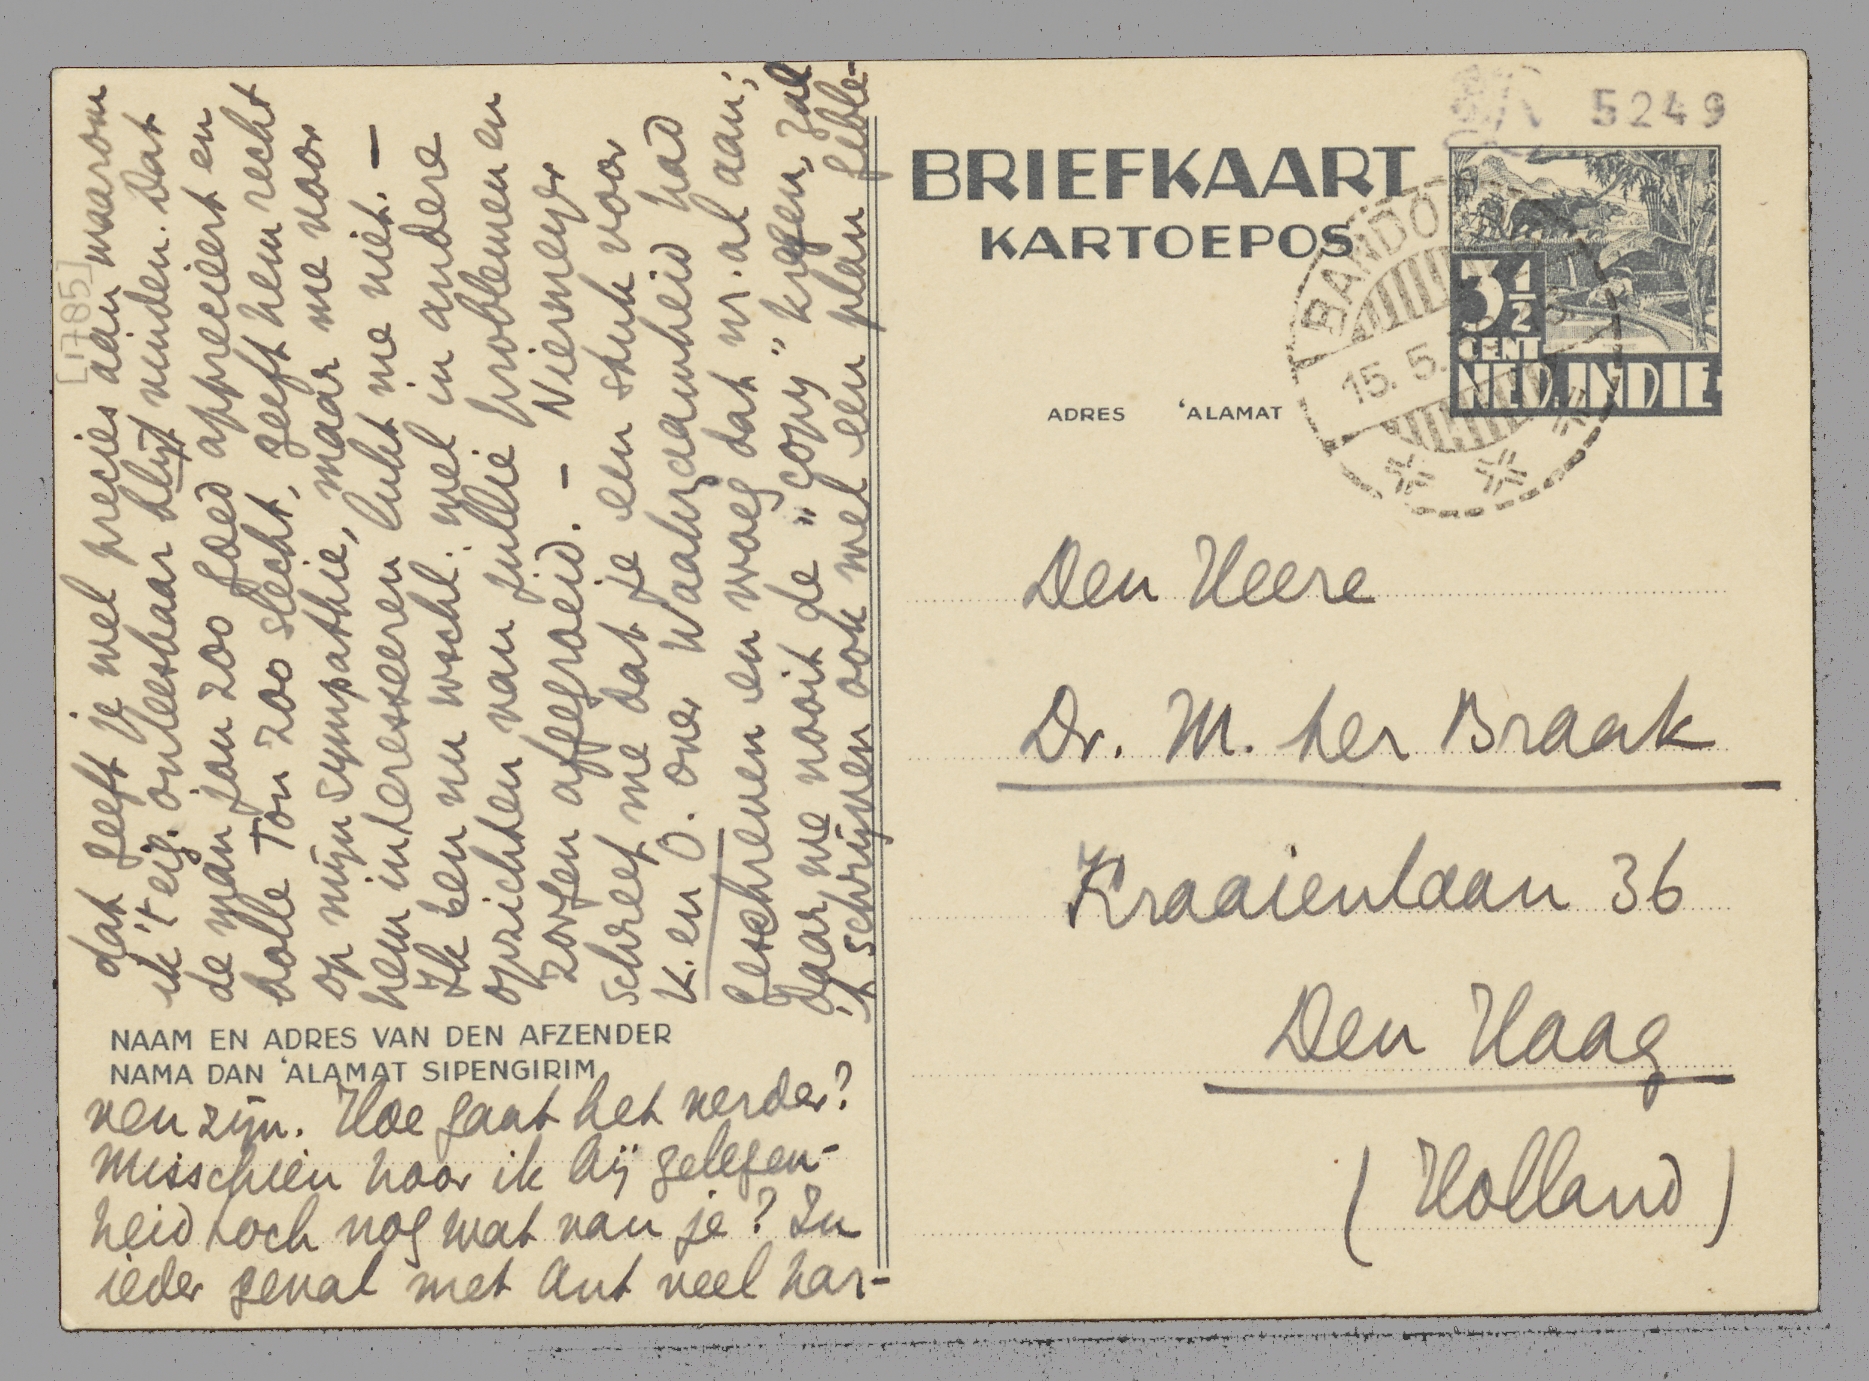 [1785]
dat geeft je wel precies aan waarom
ik 't eig. onleesbaar blijf vinden. Dat
de man Jan zoo goed apprecieert en
dolle Ton zoo slecht, geeft hem recht
op mijn sympathie, maar me voor
hem interesseeren lukt me niet. —
Ik ben nu wschl. wel in andere
opzichten van jullie problemen en
zorgen afgegroeid. — Niermeyer
schreef me dat je een stuk voor
K. en O. over Waakzaamheid had
geschreven en vroeg dat nr. al aan;
daar we nooit de "copy" krijgen, zal
't schrijven ook wel een plan geble-
NAAM EN ADRES VAN DEN AFZENDER
NAMA DAN 'ALAMAT SIPENGIRIM
ven zijn. Hoe gaat het verder?
Misschien hoor ik bij gelegen-
heid toch nog wat van je? In
ieder geval met Ant veel har-
5249
BRIEFKAART
KARTOEPOS
BANDO
15. 5.
3½
CENT
NED. INDIE
ADRES 'ALAMAT
Den Heere
Dr. M. ter Braak
Kraaienlaan 36
Den Haag
(Holland)